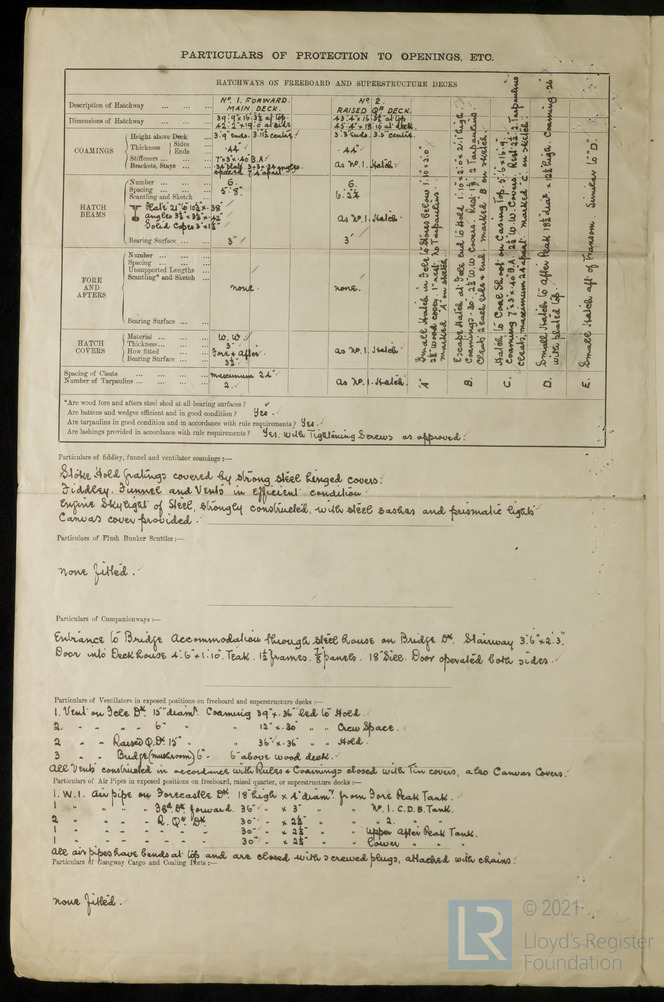 PARTICULARS OF PROTECTION TO OPENINGS, ETC.
HATCHWAYS ON FREEBOARD AND SUPERSTRUCTURE DECKS
Description of Hatchway ... ... ... No. 1. FORWARD. MAIN DECK. No. 2. RAISED QR DECK.
Dimensions of Hatchway ... ... ... 39'.9" x 16'.3½" at top. 42'.2" x 19'.0" at sides 43'.4" x 16'.3½" at top 45'.4" x 18'.10" at deck.
COAMINGS
Height above Deck ... 3'.9" ends. 3'.11½" centre. 3'.3" ends. 3'.5" centre.
Thickness Sides Ends ... .44" .44"
Stiffeners ... 7" x 3" x .40 B.A.
Brackets, Stays ... as No. 1. Hatch.
HATCH BEAMS
Number ... 6. 6.
Spacing ... 5'-8" 6'-2¼"
Scantling and Sketch ... as No. 1. Hatch
Plate 21" to 10½" x .38"
Angles 3½" x 3½" x .42"
Solid Copes 3" x 1¾"
Bearing Surface ... 3" 3"
FORE AND AFTERS
Number ...
Spacing ...
Unsupported Lengths ...
Scantling* and Sketch ...
none. none.
Bearing Surface ...
HATCH COVERS
Material ... W.W.
Thickness ... 3"
How fitted ... Fore & After. as No. 1. Hatch
Bearing Surface ... 3½"
Spacing of Cleats ... maximum 24"
Number of Tarpaulins ... 2. as No. 1. Hatch.
A Small Hatch in Fcle to Stores below 1'.10" x 2'.0"
2½" wood cover, 1" rest. No Tarpaulins.
marked A on sketch
B. Escape Hatch at Fcle end to Hold. 1'.10" x 2'.0" x 2'.1" high.
Coamings .30. 2½" W.W. Covers. Rest 1½". 2 Tarpaulins
Cleats 2 each side & end. marked "B" on sketch.
C. Hatch to Coal Shoot on Casing Top. 5'.6" x 15'.9".
Coaming 7" x 3" x .40 B.A. 2½" W.W. Covers. Rest 2½". 2 Tarpaulins
Cleats, maximum 24" apart. marked "C" on sketch.
D. Small Hatch to After Peak 18½" diar. x 12½" high. Coaming .26
with plated top.
E. Small Hatch aft of Transom. Similar to "D".
*Are wood fore and afters steel shod at all bearing surfaces? ✓
Are battens and wedges efficient and in good condition? Yes.
Are tarpaulins in good condition and in accordance with rule requirements? Yes.
Are lashings provided in accordance with rule requirements? Yes, with Tightening Screws as approved.
Particulars of fiddley, funnel and ventilator coamings:—
Stoke Hold gratings covered by strong steel hinged covers.
Fiddley. Funnel and Vents in Efficient condition
Engine Skylight of Steel, strongly constructed, with steel sashes and prismatic lights
Canvas cover provided.
Particulars of Flush Bunker Scuttles:—
None fitted.
Particulars of Companionways:—
Entrance to Bridge Accommodation through steel house on Bridge Dk. Stairway 3'.6" x 2'.3"
Door into Deckhouse 4'.6" x 1'.10". Teak. 1½" frames. ⅞ panels. 18" Sill. Door operated both sides.
Particulars of Ventilators in exposed positions on freeboard and superstructure decks:—
1. Vent on Fcle Dk. 15" diamr. Coaming 39" x .36" led to Hold.
2. " " " 6" " " 12" x .30" " " Crew Space.
2 " " Raised Q. Dk. 15" " 36" x .36" " " Hold.
3 " Bridge (mushroom) 6" - 6" above wood deck.
All Vents constructed in accordance with Rules & Coamings closed with Tin covers, also Canvas Covers.
Particulars of Air Pipes in exposed positions on freeboard, raised quarter, or superstructure decks:—
1. W.I. Air pipe on Forecastle Dk 18" high x 4" diamr. from Fore Peak Tank.
1 " " " Fd. Dk forward. 36" " x 3" " " No. 1. C.D.B. Tank.
2 " " " R. Qr. Dk 30" " x 2½" " " " 2. "
1 " " " " " 30" " x 2½" " " Upper After Peak Tank.
1 " " " " " 30" " x 2½" " " Lower " "
All air pipes have bends at top and are closed with screwed plugs, attached with chains.
Particulars of Gangway Cargo and Coaling Ports:—
None fitted.
LR
© 2021
Lloyd's Register
Foundation